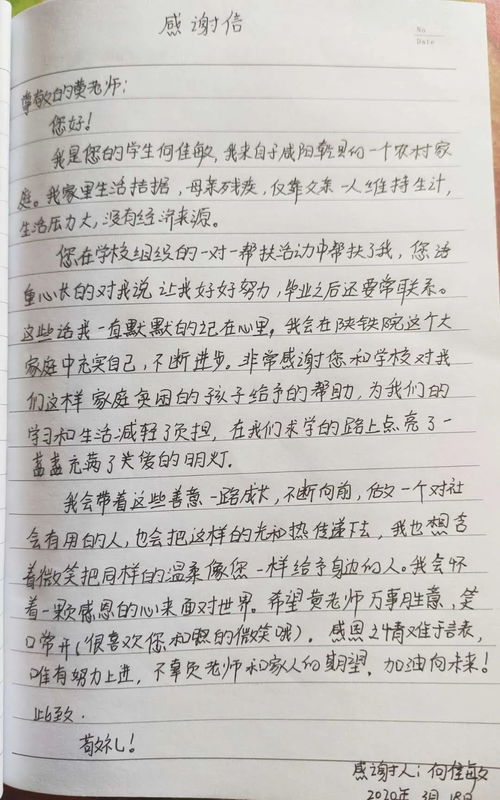 感谢信
No
Date
尊敬的黄老师:
您好!
我是您的学生何佳敏,我来自于咸阳乾县的一个农村家
庭。我家里生活拮据,母亲残疾,仅靠父亲一人维持生计,
生活压力大,没有经济来源。
您在学校组织的一对一帮扶活动中帮扶了我,您语
重心长的对我说 让我好好努力,毕业之后还要常联系。
这些话我一直默默的记在心里。我会在陕铁院这个大
家庭中充实自己,不断进步。非常感谢您和学校对我
们这样家庭贫困的孩子给予的帮助,为我们的
学习和生活减轻了负担,在我们求学的路上点亮了一
盏盏充满了关爱的明灯.
我会带着这些善意一路成长,不断向前,做一个对社
会有用的人,也会把这样的光和热传递下去,我也想含
着微笑把同样的温柔像您一样给予身边的人。我会怀
着一颗感恩的心来面对世界。希望黄老师万事胜意,笑
口常开(很喜欢您和煦的微笑哦)。感恩之情难于言表,
唯有努力上进,不辜负老师和家人的期望,加油向未来!
此致.
敬礼!
感谢人:何佳敏
2020年3月18日